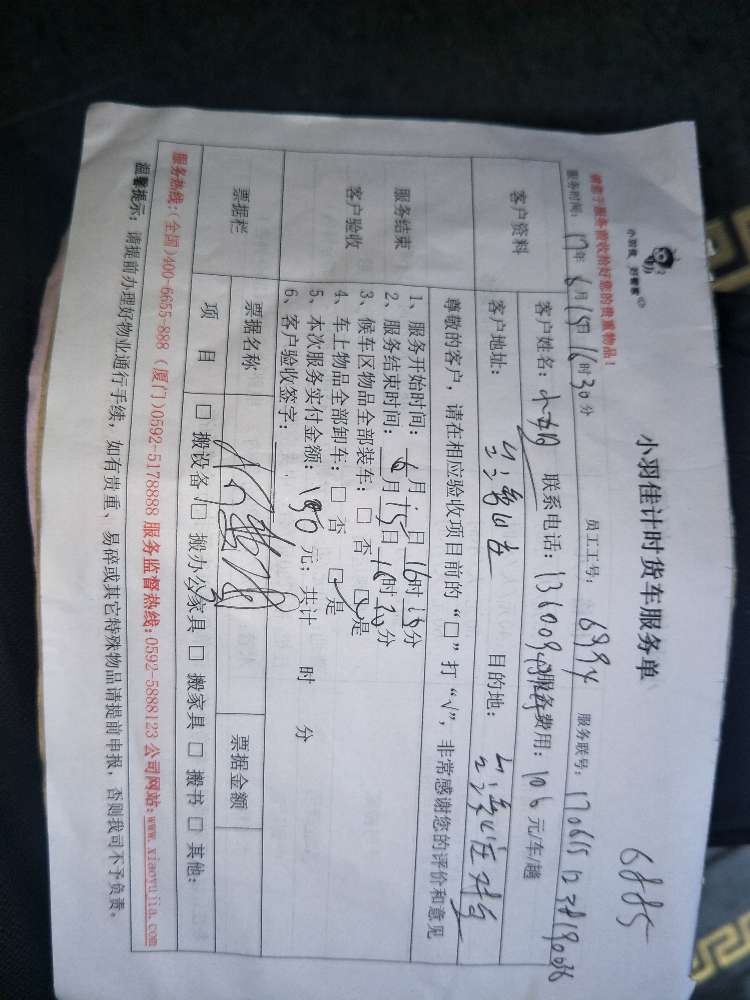 6885
小羽佳计时货车服务单
小羽佳 好管家
请您于服务前收拾好您的贵重物品！
服务时间：17年6月15日16时30分 员工工号：6994 服务联号：
客户资料
客户姓名： 联系电话： 服务费用：106元/车/趟
客户地址： 目的地：
尊敬的客户，请在相应验收项目前的“□”打“√”，非常感谢您的评价和意见
服务结束
客户验收
1、服务开始时间： 月 日16时 分
2、服务结束时间：6月15日 时20分
3、候车区物品全部装车：□ 否 ☑ 是
4、车上物品全部卸车：□ 否 ☑ 是
5、本次服务实付金额： 元；共计 时 分
6、客户验收签字：
票据栏 票据名称 票据金额
项 目 □ 搬设备 □ 搬办公家具 □ 搬家具 □ 搬书 □ 其他：
服务热线：(全国)400-6655-888 (厦门)0592-5178888 服务监督热线：0592-5888123 公司网站：www.xiaoyujia.com
温馨提示：请提前办理好物业通行手续，如有贵重、易碎或其它特殊物品请提前申报，否则我司不予负责。